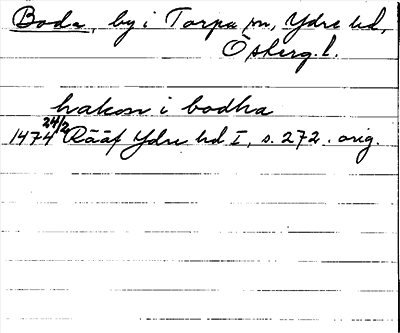 Boda, by i Torpa sn, Ydre hd,
Östergl.
hakon i bodha
1474 24/2 Rääf Ydre hd I, s. 272. orig.